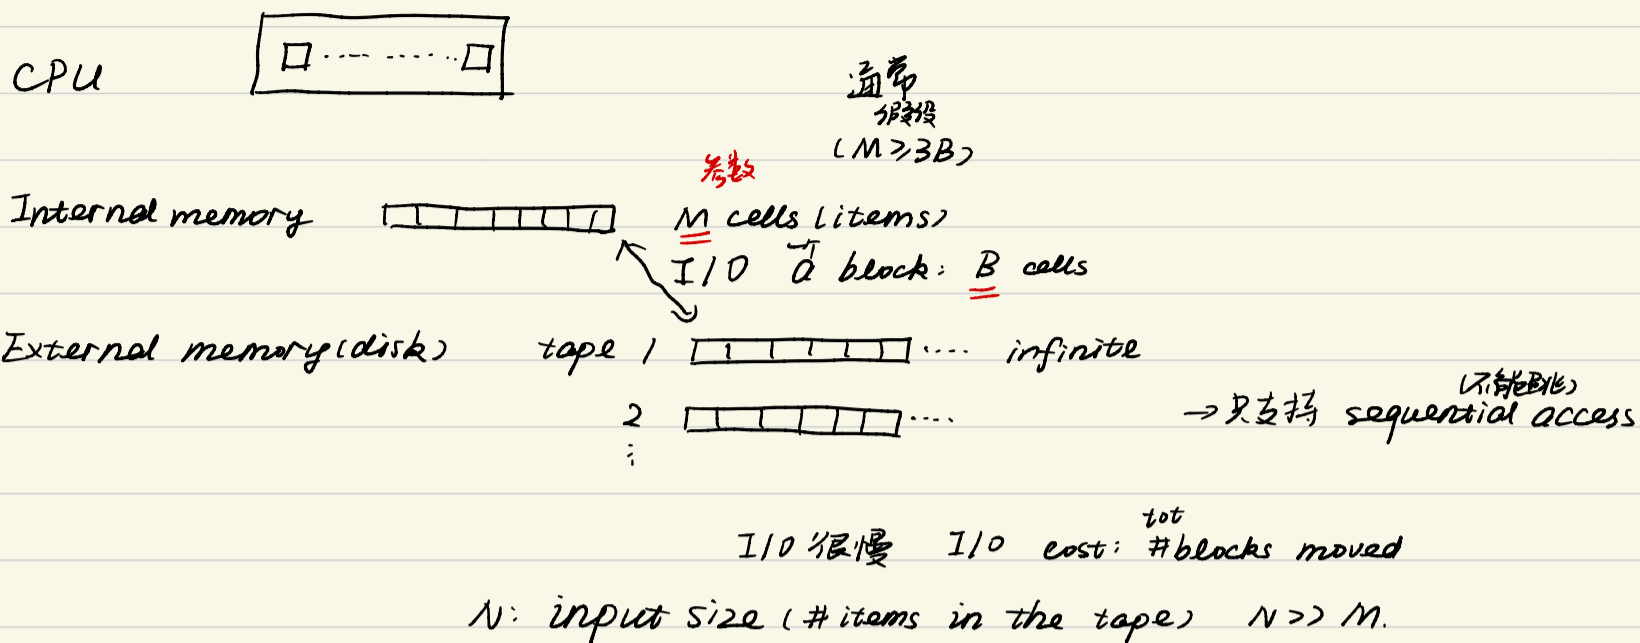 CPU
通常
假设
(M≥3B)
参数
Internal memory M cells (items)
I/O 一个 a block: B cells
External memory (disk) tape 1 .... infinite
(不能跳)
2 .... → 只支持 sequential access
⋮
tot
I/O 很慢 I/O cost: #blocks moved
N: input size (# items in the tape) N>>M.